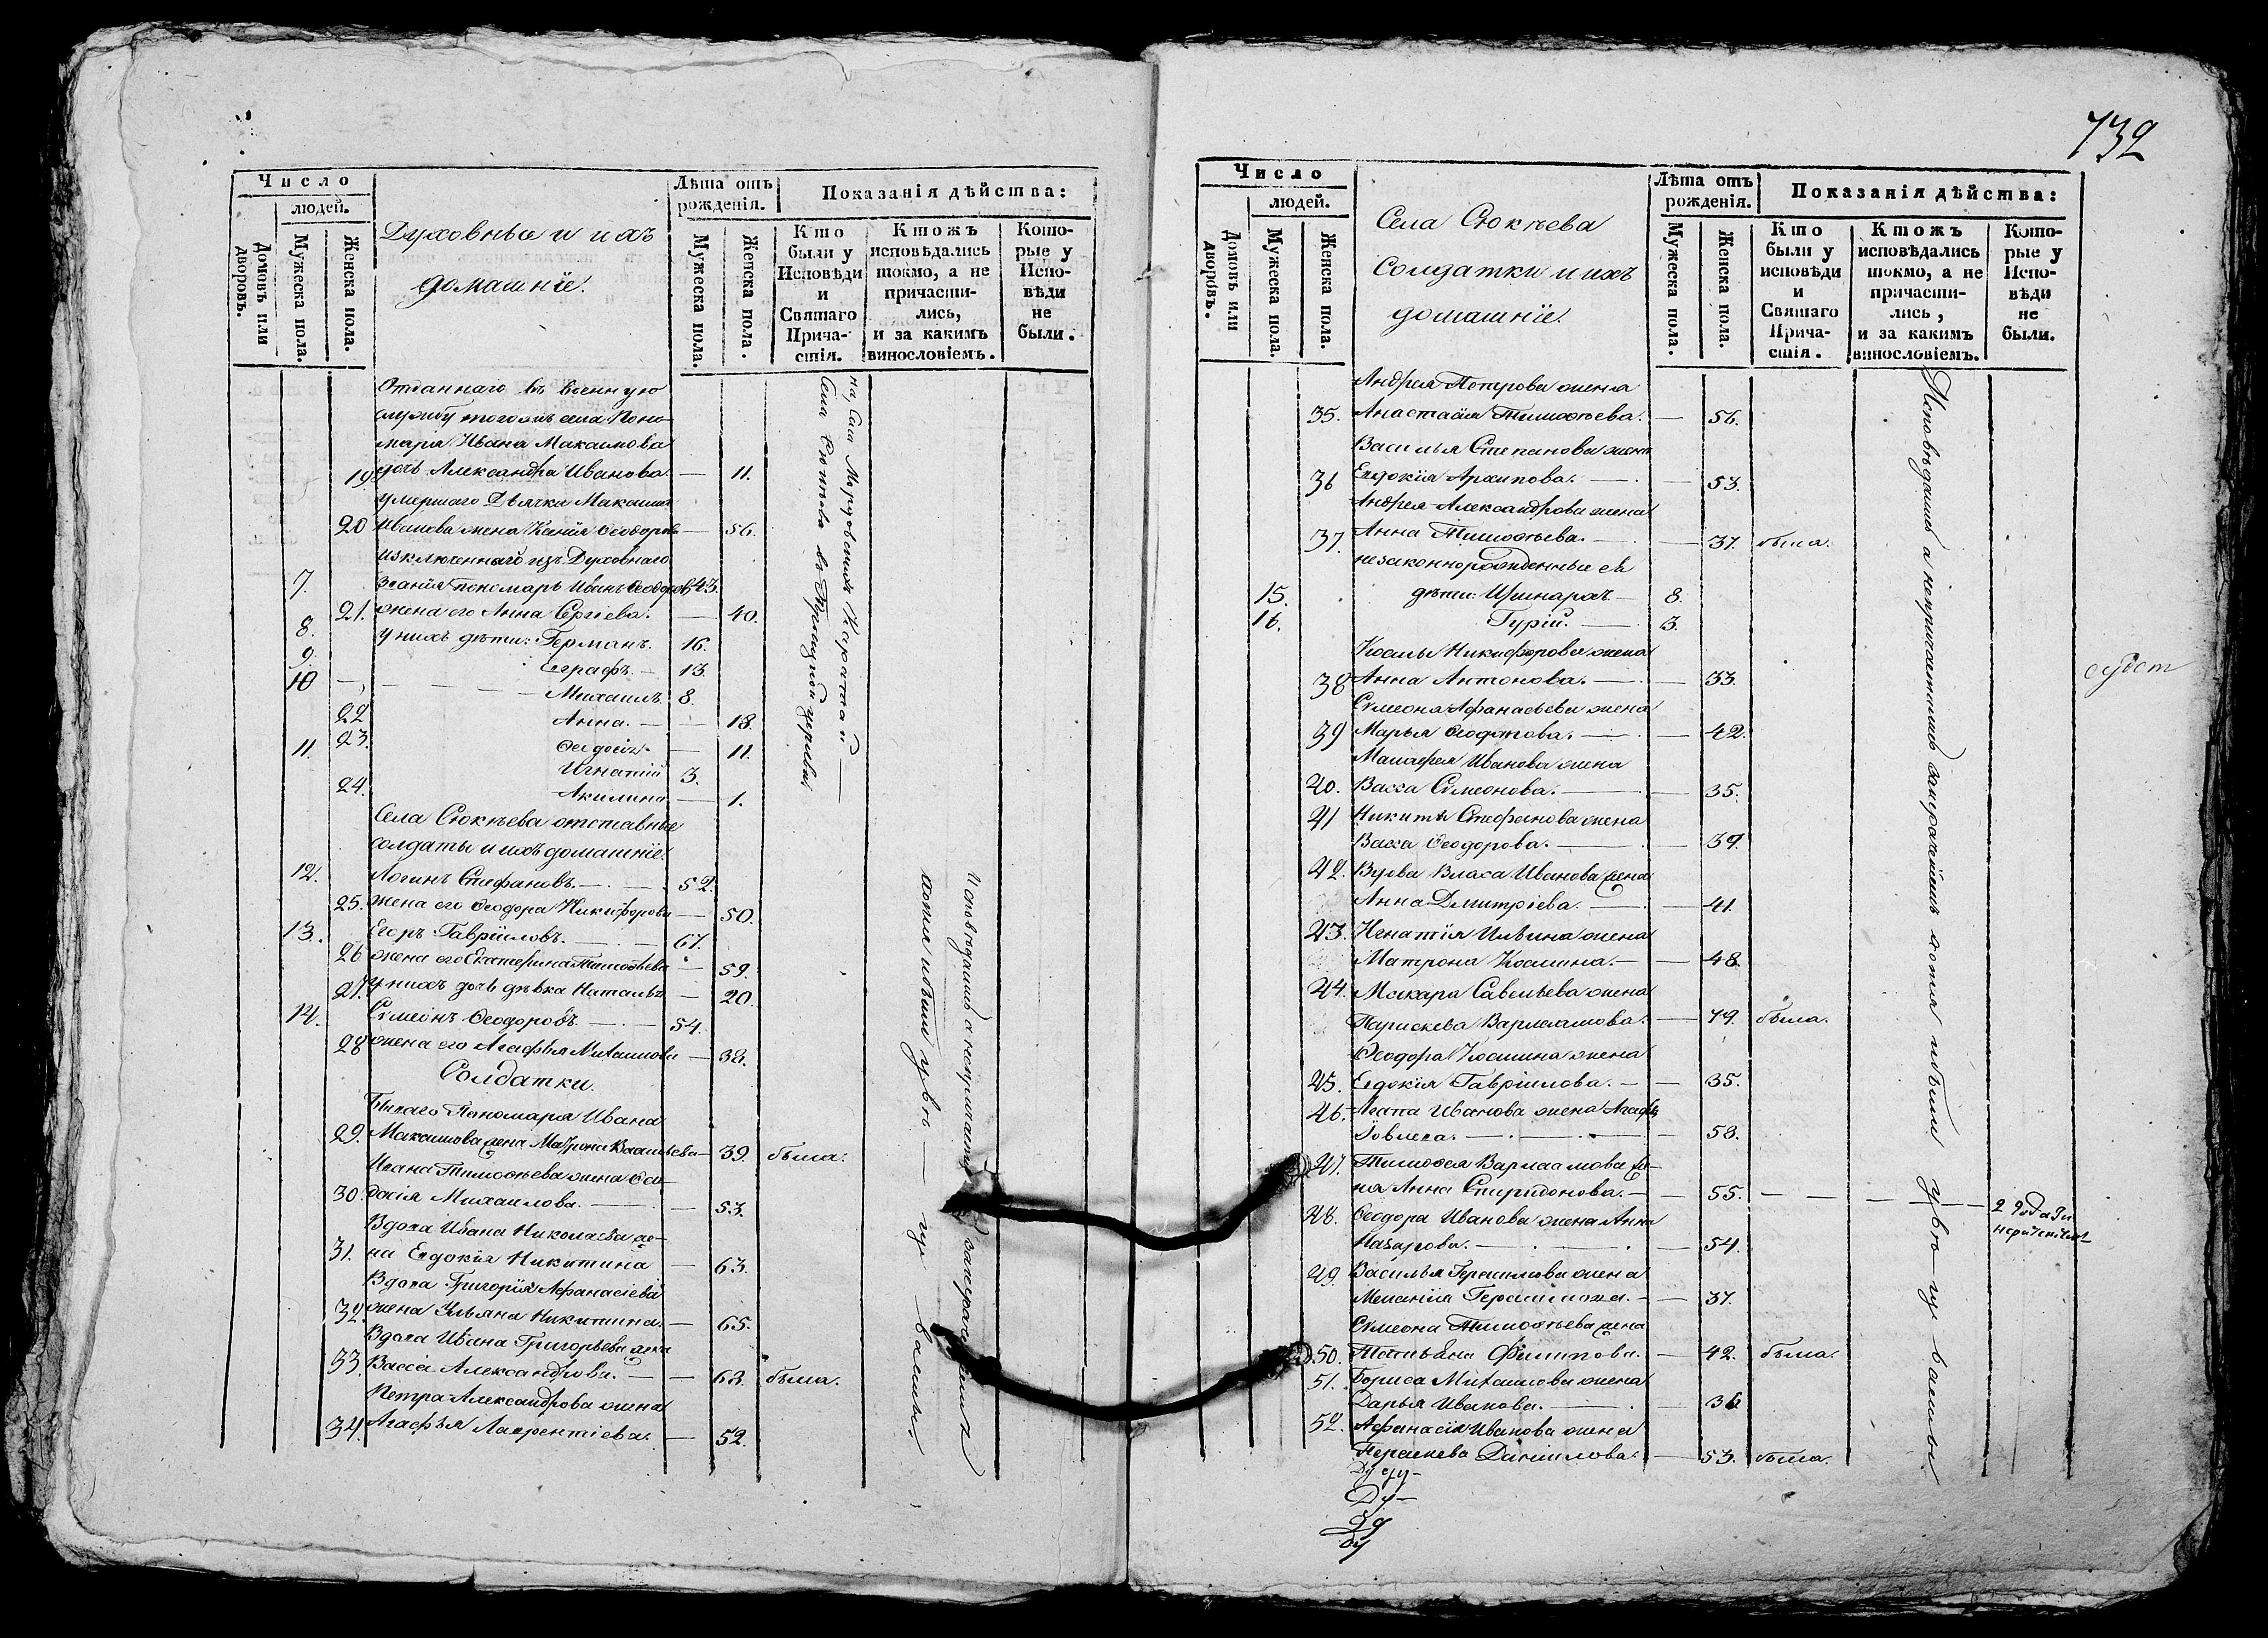 Число
людей.
Домовъ или дворовъ.
Мужеска пола.
Женска пола.
Духовные и ихъ
домашніе.
Лѣта отъ
рожденія.
Мужеска пола.
Женска пола.
Показанія дѣйства:
Кто
были у
Исповѣди
и
Святаго
Прича-
стія.
Ктожъ
исповѣдались
токмо, а не
причасти-
лись,
и за какимъ
винословіемъ.
Кото-
рые у
Испо-
вѣди
не
были.
Отданнаго въ военную
службу тогожъ села Поно-
маря Ивана Максимова
19 дочь Александра Иванова. — 11.
умершаго Дьячка Максима
20 Иванова жена Ксенія Ѳеодорова — 56.
изключеннаго изъ Духовнаго
7. званія пономарь Иванъ Ѳеодоровъ 43.
21. жена его Анна Сергіева. — 40.
8. у нихъ дѣти: Германъ. 16.
9. Евграфъ. — 13.
10 Михаилъ. 8.
22 Анна. — 18.
23. Ѳеодосія. — 11.
11. Игнатій 3.
24. Акилина — 1.
Села Сюкѣева отставные
солдаты и ихъ домашніе.
12. Логинъ Стефановъ. — 52.
25. жена его Ѳеодора Никифорова — 50.
13. Егоръ Гавріиловъ. — 67.
26 жена его Екатерина Тимоѳѣева — 59.
27. у нихъ дочь дѣвка Наталья — 20.
14. Сѵмеонъ Ѳеодоровъ. — 54.
28 жена его Агафья Михаилова — 38.
Солдатки.
Бывшаго Пономаря Ивана
29. Максимова жена Матрона Васильева — 39. была.
Ивана Тимоѳѣева жена Ѳео-
30. досія Михаилова. — 53.
Вдова Ивана Николаева же-
31. на Евдокія Никитина — 63.
Вдова Григорія Аѳанасіева
32. жена Ульяна Никитина. — 65.
Вдова Ивана Григорьева жена
33. Васса Александрова. — 68. была.
Петра Александрова жена
34. Агафья Лаврентіева. — 52.
Села Сюкѣева въ Троицкой церкви
Исповѣдались а непричастились
732
Число
людей.
Домовъ или дворовъ.
Мужеска пола.
Женска пола.
Села Сюкѣева
солдатки и ихъ
домашніе.
Лѣта отъ
рожденія.
Мужеска пола.
Женска пола.
Показанія дѣйства:
Кто
были у
исповѣди
и
Святаго
Прича-
стія.
Ктожъ
исповѣдались
токмо, а не
причасти-
лись,
и за какимъ
винословіемъ.
Кото-
рые у
Испо-
вѣди
не
были.
Андрея Петрова жена
35. Анастасія Тимоѳѣева. — 56.
Василья Степанова жена
36 Евдокія Архипова. — 53.
Андрея Александрова жена
37. Анна Тимоѳѣева. — 37. была.
незаконнорожденные ея
15. дѣти: — 8.
16. Гурій. — 3.
Косьмы Никифорова жена
38 Анна Антонова. — 33.
Сѵмеона Аѳанасьева жена
39 Марья Ѳеодотова. — 42.
Матѳея Иванова жена
40. Васса Сѵмеонова. — 35.
41 Никиты Стефанова жена
Васса Ѳеодорова. — 39.
42. Вдова Власа Иванова жена
Анна Дмитріева. — 41.
43. Игнатія Ильина жена
Матрона Космина. — 48.
44. Макара Савельева жена
Параскева Варлаамова. — 49. была.
Ѳеодора Космина жена
45. Евдокія Гавріилова. — 35.
46. Агапа Иванова жена Агафья
Іовлева. — 58.
47. Тимоѳея Варлаамова же-
на Анна Спиридонова. — 55. — 2 года
48. Ѳеодора Иванова жена Анна
Назарова. — 54.
49. Василья Герасимова жена
Меланія Герасимова. — 37.
Сѵмеона Тимоѳѣева жена
50. Татьяна Филипова. — 42. была.
51. Бориса Михаилова жена
Дарья Иванова. — 36
52. Аѳанасія Иванова жена
Параскева Даніилова. — 53. была.
Исповѣдались а непричастились